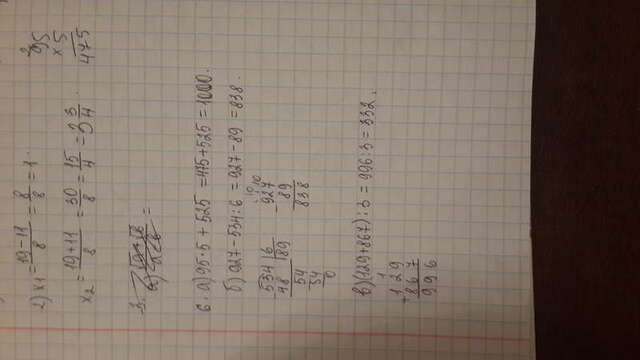 2) x1 = 19-11/8 = 8/8 = 1.
2
95
×5
475
x2 = 19+11/8 = 30/8 = 15/4 = 3 3/4.
3.
а) =
6. а) 95·5 + 525 = 475+525 = 1000.
б) 927-534:6 = 927-89 = 838.
534|6
48 |89
54
54
0
10 10
927
- 89
838
в) (129+867):3 = 996:3 = 332.
1
129
+867
996